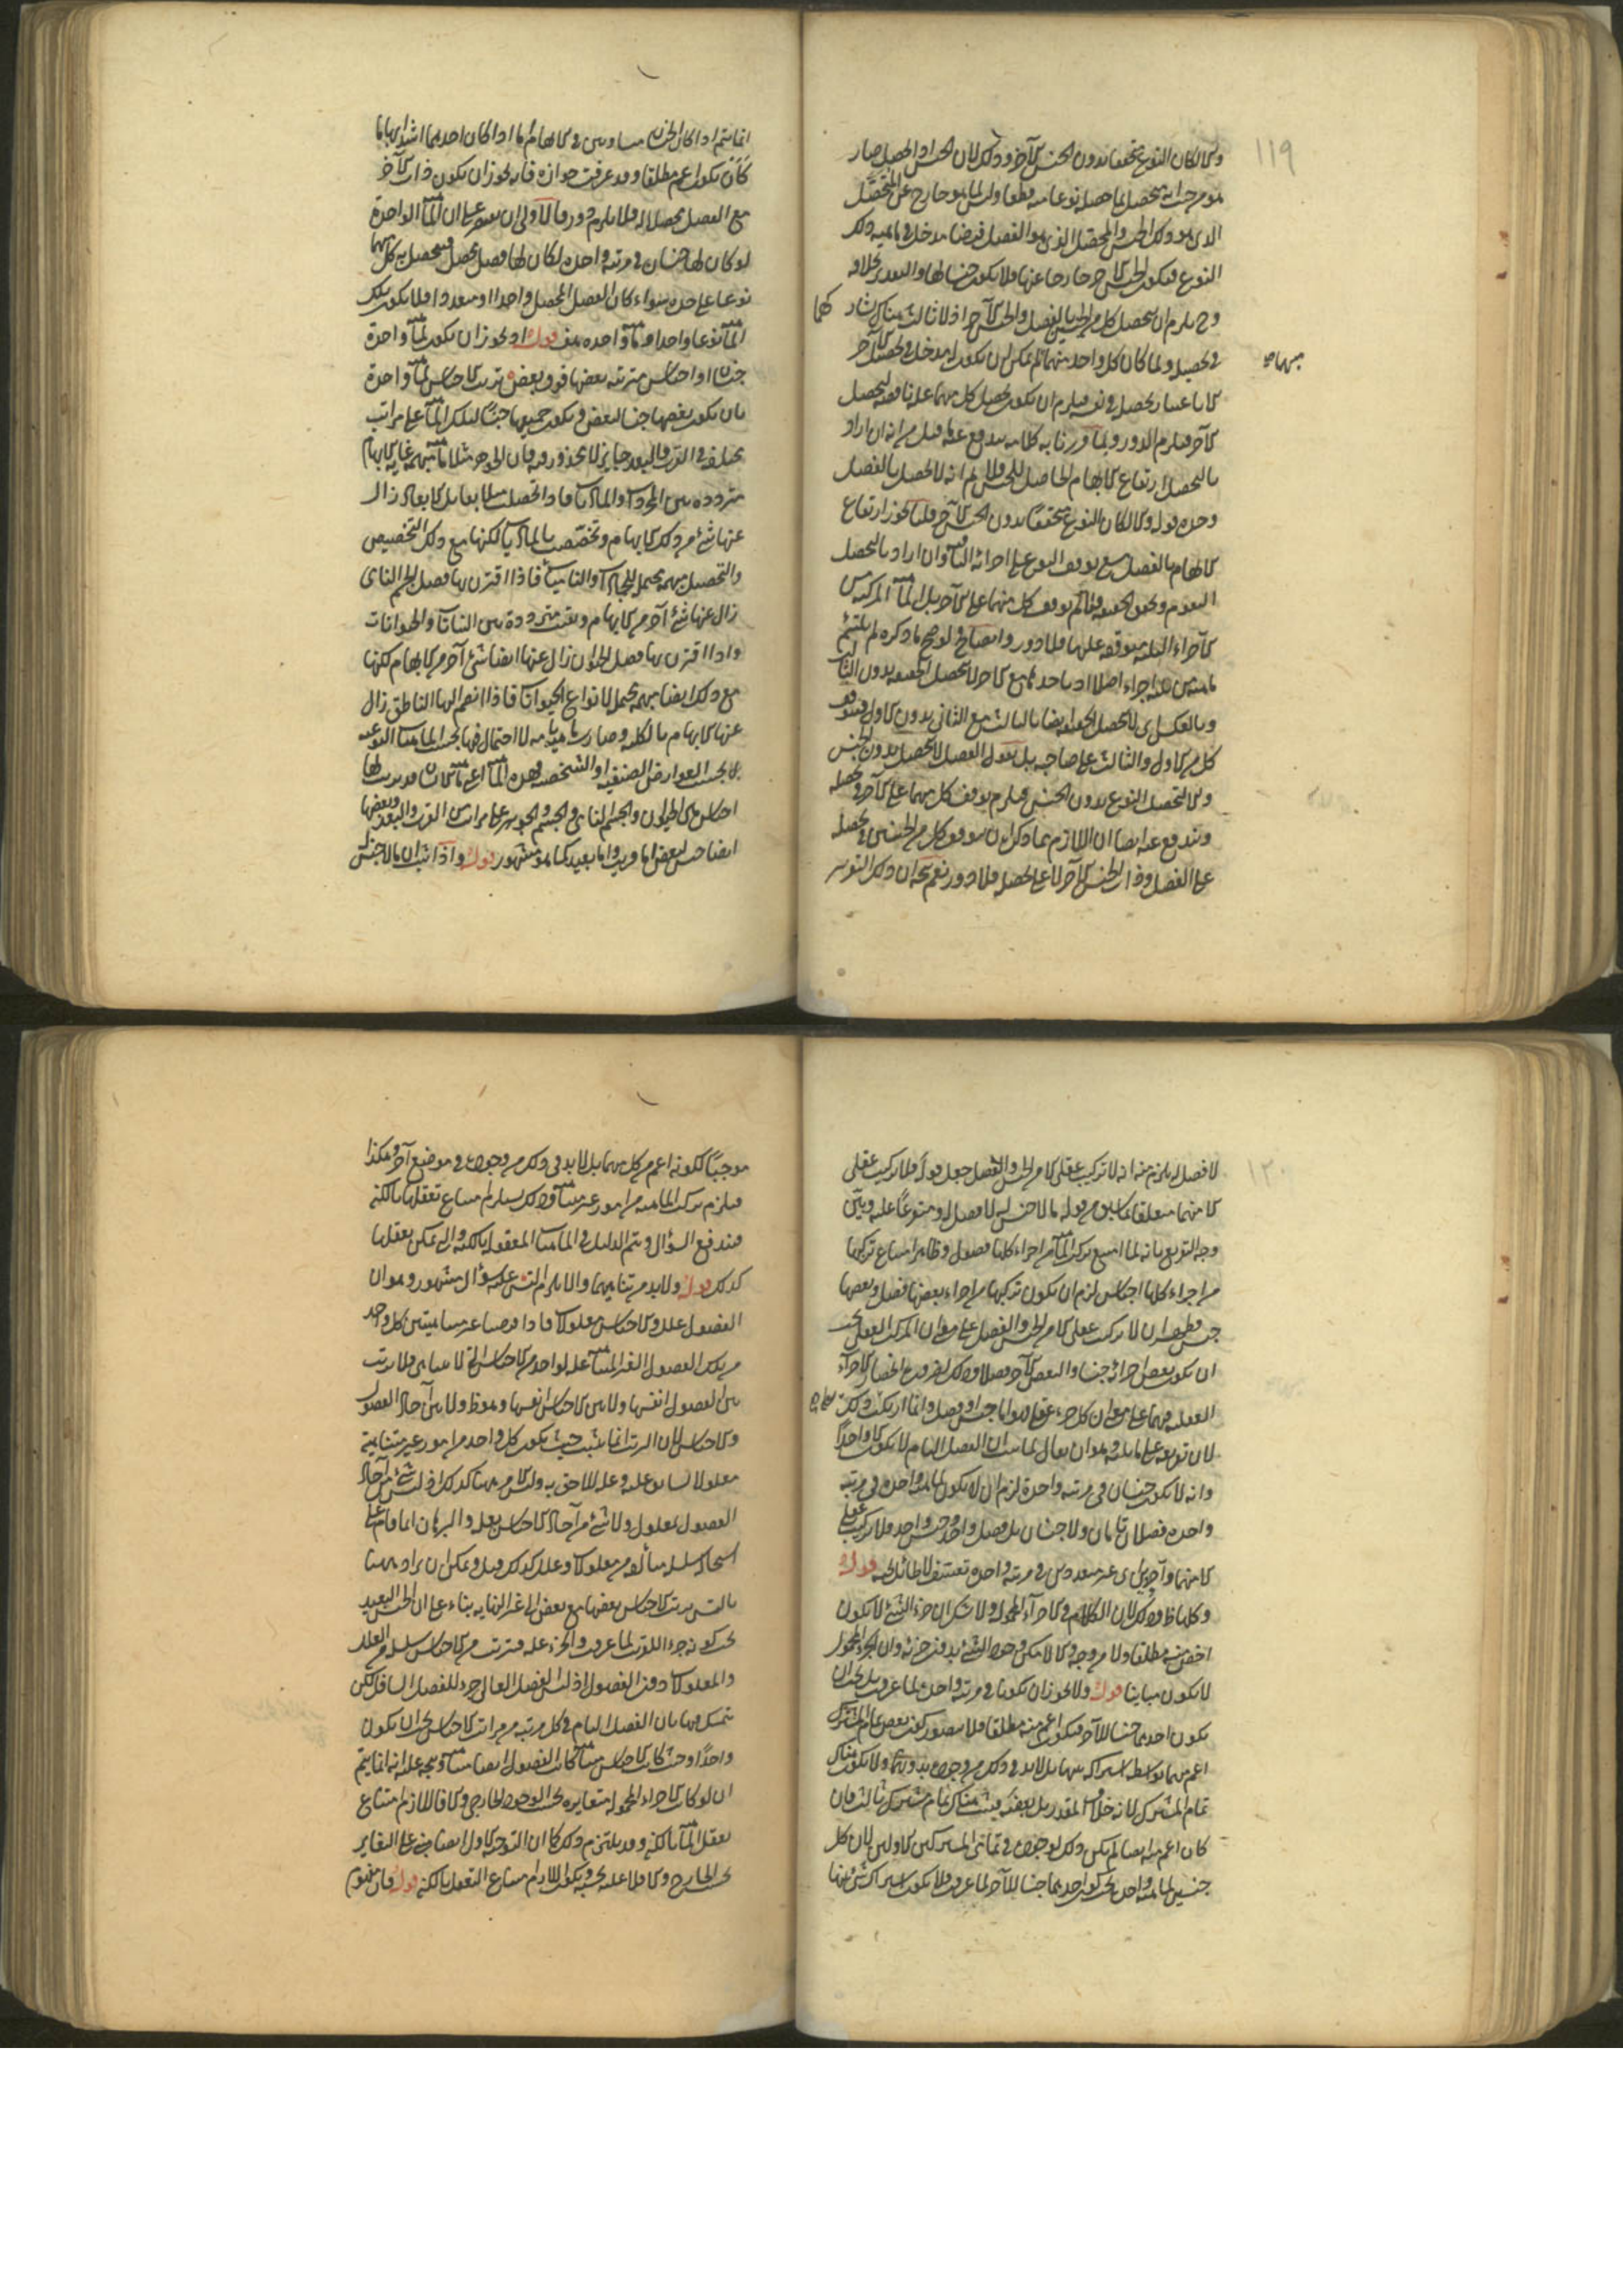 ١١٩
والا لكان النوع متحققا بدون الجنس الآخر وذلك لان الجنس اذا تحصل صار
هو من حيث انه متحصل بما حصله نوعا منه قطعا وليس لما هو خارج عن المتحصل
الذى هو ذلك الجنس والمحصل الذى هو الفصل فيضا مدخل فى ماهية ذلك
النوع فيكون الجنس الآخر خارجا عنها فلا يكون جنسا لها والمقدر خلافه
وح يلزم ان يتحصل كل من الجنسين بالفصل والجنس الآخر اذ لا ثالث هناك يشاركهما
فى تحصيله ولما كان كل واحد منهما مبهما لم يمكن ان يكون له مدخل فى تحصيل الآخر
الا باعتبار تحصله فى نفسه فيلزم ان يكون تحصل كل منهما علة ناقصة لتحصل
الآخر فيلزم الدور وبما قررنا به كلامه يندفع عنه ما قيل من انه ان اراد
بالتحصل ارتفاع الابهام الحاصل للجنس فلا نم انه لا يحصل بالفصل
وحده قوله والا لكان النوع متحققا بدون الجنس الآخر قلنا يجوز ارتفاع
الابهام بالفصل مع توقف النوع على اجزائه الثلثة وان اراد بالتحصل
التقوم وتحقق الحقيقة فلا نم توقف كل منهما على الآخر بل الماهية المركبة من
الاجزاء الثلثة متوقفة عليها فلا دور وايضا لو صح ما ذكره لم يلتئم
ماهية من ثلثة اجزاء اصلا اذ باحدها مع الاول لا تحصل الحقيقة بدون الثالث
وبالعكس اى لا تحصل الحقيقة ايضا بالثالث مع الثانى بدون الاول فيتوقف
كل من الاول والثالث على صاحبه بل نقول الفصل لا يتحصل بدون الجنس
والا لتحصل النوع بدون الجنس فيلزم توقف كل منهما على الآخر فى تحصله
ويندفع عنه ايضا ان اللازم مما ذكر ان توقف كل من الجنسين فى تحصله
على الفصل وذات الجنس الآخر لا على تحصله فلا دور نعم يتجه ان ذلك التوجيه
انما يتم اذا كان الجنسان متساويين فى الابهام اما اذا كان احدهما اشد ابهاما
كأن يكون اعم مطلقا وقد عرفت جوازه فانه يجوز ان يكون ذات الآخر
مع الفصل محصلا له فلا يلزم دور فالاولى ان يقتصر على ان الماهية الواحدة
لو كان لها جنسان فى مرتبة واحدة لكان لها فصل يحصل فيتحصل به كل منهما
نوعا على حدة سواء كان الفصل المحصل واحدا او متعددا فلا يكون تلك
الماهية نوعا واحدا وماهية واحدة هف قوله او يجوز ان يكون لماهية واحدة
جنسان او اجناس مترتبة بعضها فوق بعض ترتب الاجناس لماهية واحدة
بان يكون بعضها جنسا لبعض ويكون جميعها جنسا لتلك الماهية على مراتب
مختلفة فى القرب والبعد جايز لا محذور فيه فان الجوهر مثلا ماهية مبهمة غاية الابهام
مترددة بين المجردات والماديات فاذا تحصلت مثلا بقابل الابعاد زال
عنها شئ من ذلك الابهام وتخصصت بالماديات لكنها مع ذلك التخصيص
والتحصل مبهمة محتمل للجمادات والناميات فاذا اقترن بها فصل الجسم النامى
زال عنها شئ آخر من الابهام وبقيت مترددة بين النباتات والحيوانات
واذا اقترن بها فصل الحيوان زال عنها ايضا شئ آخر من الابهام لكنها
مع ذلك ايضا مبهمة محتملة لانواع الحيوانات فاذا انضم اليها الناطق زال
عنها الابهام بالكلية وصارت ماهية تامة لا احتمال فيها بحسب الماهيات النوعية
بل بحسب العوارض الصنفية او الشخصية فهذه الماهية اعنى ماهية الانسان قد ترتبت لها
اجناس هى الحيوان والجسم النامى والجسم والجوهر على مراتب من القرب والبعد وبعضها
ايضا جنس لبعض اما قريب واما بعيد كما هو مشهور قوله واذا ثبت ان ما لا جنس
١٢٠
لا فصل له يلزم منه انه لا تركيب عقلى الا من الجنس والفصل جعل قوله فلا تركيب عقلى
الا منهما متعلقا بما سبق من قوله ما لا جنس له لا فصل له ومتفرعا عليه وبين
وجه التفريع بانه لما امتنع تركب الماهية من اجزاء كلها فصول وظاهر امتناع تركبها
من اجزاء كلها اجناس لزم ان يكون تركيبها من اجزاء بعضها فصل وبعضها
جنس فظهر ان لا تركيب عقلى الا من الجنس والفصل على معنى ان المركب العقلى يجب
ان يكون بعض اجزائه جنسا والبعض الآخر فصلا وذلك فرع انحصار الاجزاء
العقلية فيهما على معنى ان كل جزء عقلى فهو اما جنس او فصل وانما ارتكب ذلك
لان تفريعه على ما يليه وهو ان يقال لما ثبت ان الفصل التام لا يكون الا واحدا
وانه لا يكون جنسان فى مرتبة واحدة لزم ان لا يكون لماهية واحدة فى مرتبة
واحدة فصلان تامان ولا جنسان بل فصل واحد وجنس واحد فلا تركيب عقلى
الا منهما واحدين اى غير متعددين فى مرتبة واحدة تعسف لا طائل تحته قوله
وكلها ظ وذلك لان الكلام فى الاجزاء المحمولة ولا شك ان جزء الشئ لا يكون
اخص منه مطلقا ولا من وجه والا لامكن وجود الشئ بدون جزئه وان الجزء المحمول
لا يكون مباينا قوله ولا يجوز ان يكونا فى مرتبة واحدة لما عرفت بل يجب ان
يكون احدهما جنسا للآخر فيكون اعم منه مطلقا فلا يتصور كون بعض تمام المشترك
اعم منهما بواسطة اشتراكه بينهما بل لا بد فى ذلك من وجوده بدونهما ولا يكون هناك
تمام المشترك لانه خلاف المقدر بل بعضه فيثبت هناك تمام مشترك ثالث فان
كان اعم منه ايضا لم يكن ذلك لوجوده فى تمامى المشتركين الاولين لان كل
جنسين لماهية واحدة يجب كون احدهما جنسا للآخر لما عرفت فلا يكون اشتراك شئ بينهما
موجبا لكونه اعم من كل منهما بل لا بد فى ذلك من وجوده فى موضع آخر وهكذا
فيلزم تركب الماهية من امور غير متناهية وذلك يستلزم امتناع تعقلها بالكنه
فيندفع السؤال ويتم الدليل فى الماهيات المعقولة بالكنه والتى يمكن تعقلها
كذلك قوله ولا بد من تناهيهما والا يلزم التس عليه سؤال مشهور وهو ان
الفصول علل والاجناس معلولات فاذا فرضنا غير متناهيتين كان كل واحد
من تلك الفصول الغير المتناهية علة لواحد من الاجناس التى لا تتناهى ولا ترتب
بين الفصول انفسها ولا بين الاجناس انفسها وهو ظ ولا بين آحاد الفصول
والاجناس لان الترتب انما يثبت حيث يكون كل واحد من امور غير متناهية
معلولا لسابق عليه وعلة للاحق به وليس الامر ههنا كذلك اذ ليس شئ من آحاد
الفصول بمعلول ولا شئ من آحاد الاجناس بعلة والبرهان انما قام على
استحالة سلسلة متألفة من معلولات وعلل كذلك قيل ويمكن ان يراد ههنا
بالتس ترتب الاجناس بعضها مع بعض الى غير النهاية بناء على ان الجنس البعيد
يجب كونه جزءا للقريب لما عرفت والجزء علة فترتب من الاجناس سلسلة من العلل
والمعلولات دون الفصول اذ ليس الفصل العالى جزءا للفصل السافل لكن
يتمسك فيها بان الفصل التام فى كل مرتبة من مراتب الاجناس يجب ان يكون
واحدا وحيث كانت الاجناس متناهية كانت الفصول ايضا متناهية ويتجه عليه انه انما يتم
ان لو كانت الاجزاء المحمولة متغايرة بحسب الوجود الخارجى والا فاللازم امتناع
تعقل الماهية بالكنه وقد يلتزم ذلك كما ان التوجيه الاول ايضا مبنى على التغاير
بحسب الخارج والا فلا علية ويكون اللازم امتناع التعقل بالكنه قوله فان مفهوم